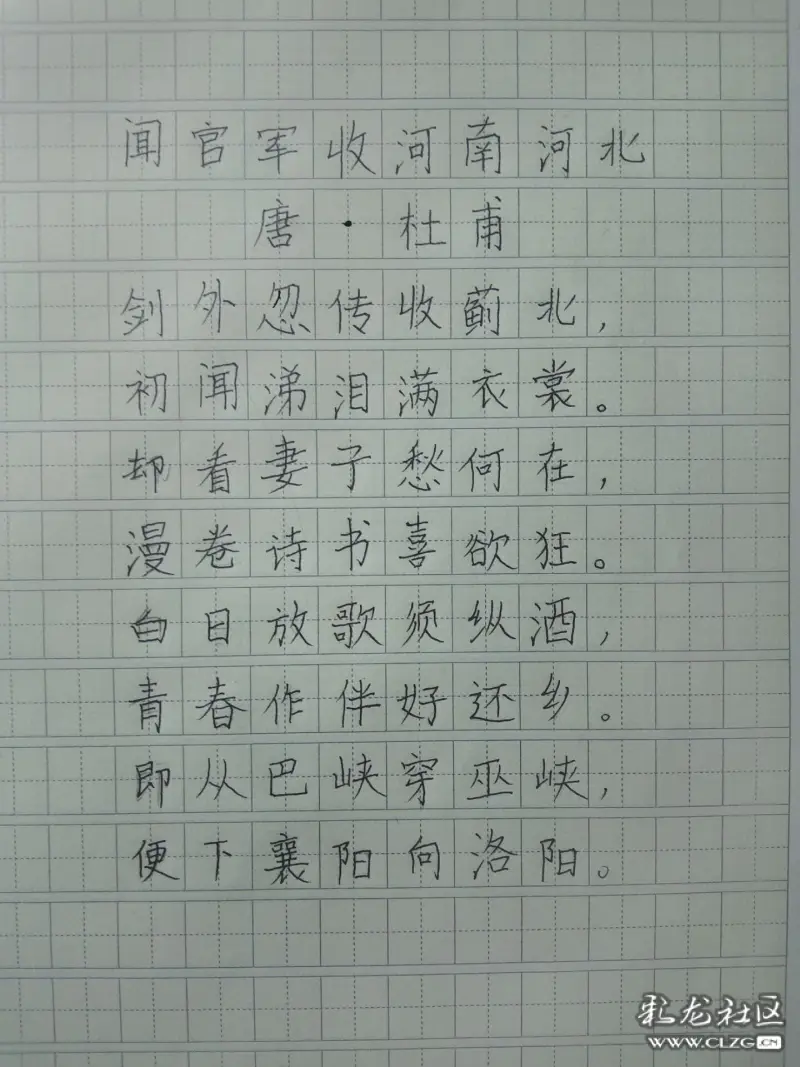 闻官军收河南河北
唐·杜甫
剑外忽传收蓟北,
初闻涕泪满衣裳。
却看妻子愁何在,
漫卷诗书喜欲狂。
白日放歌须纵酒,
青春作伴好还乡。
即从巴峡穿巫峡,
便下襄阳向洛阳。
彩龙社区
www.CLZG.CN